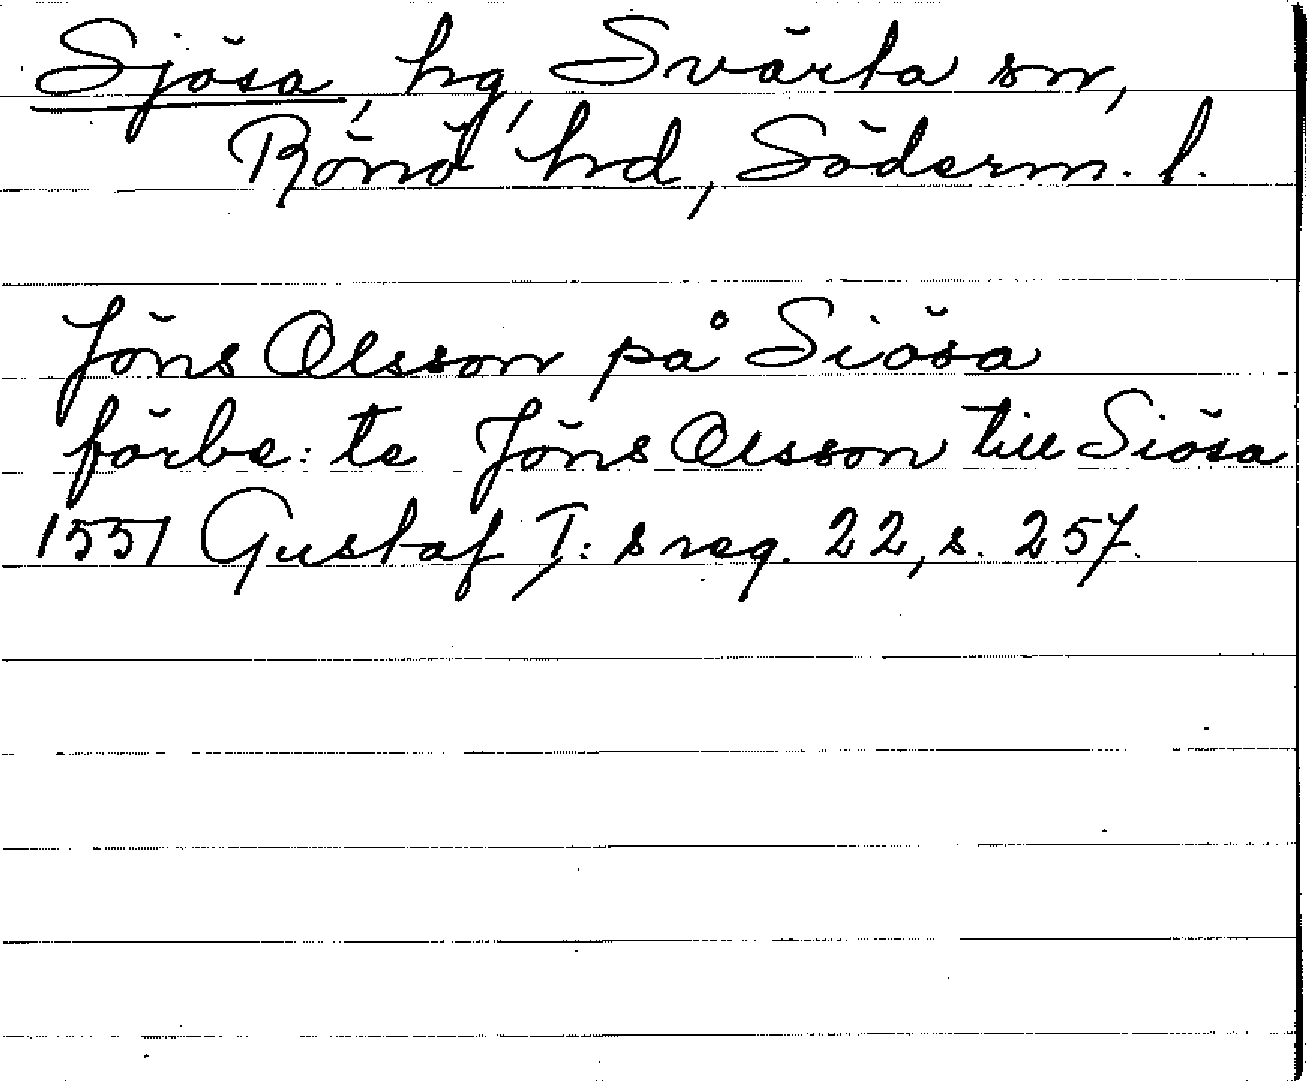 Sjösa, hg, Svärta sn,
Rönö hd, Söderm. l.
Jöns Olsson på Siösa
förbe:te Jöns Olsson till Siösa
1551 Gustaf I:s reg. 22, s. 257.